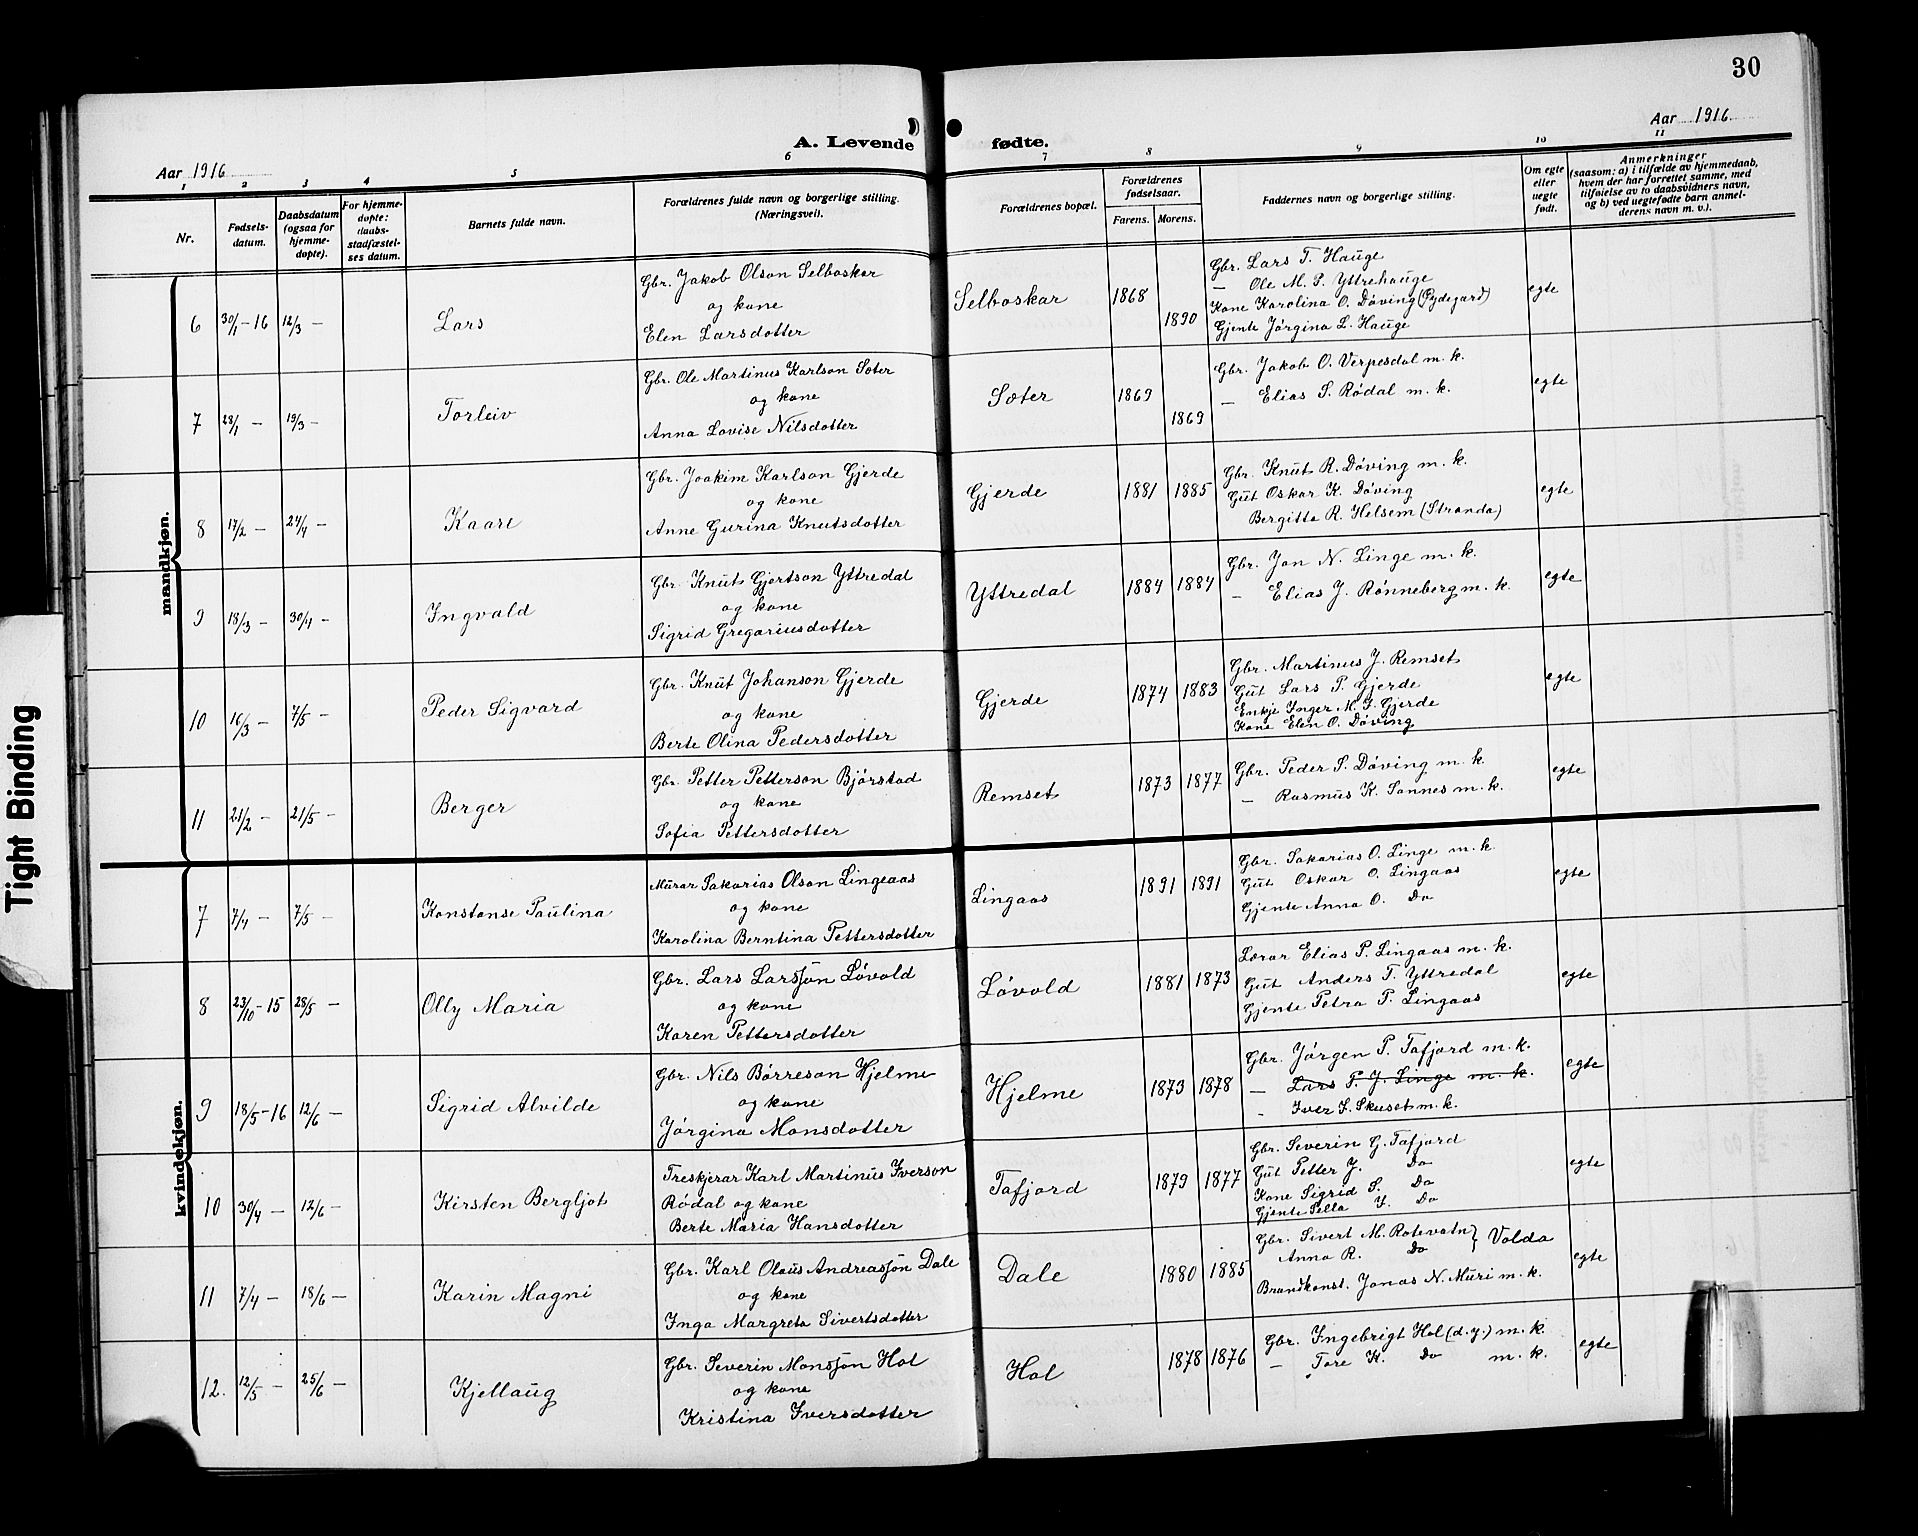 30
Aar 1916
A. Levende fødte.
Aar 1916
1 2 3 4 5 6 7 8 9 10 11
Nr.
Fødsels-
datum.
Daabsdatum
(ogsaa for
hjemme-
døpte).
For hjemme-
døpte:
daabs-
stadfæstel-
ses datum.
Barnets fulde navn.
Forældrenes fulde navn og borgerlige stilling.
(Næringsvei).
Forældrenes bopæl.
Forældrenes
fødselsaar.
Farens. Morens.
Faddernes navn og borgerlige stilling.
Om egte
eller
uegte
født.
Anmerkninger
(saasom: a) i tilfælde av hjemmedaab,
hvem der har forrettet samme, med
tilføielse av to daabsvidners navn,
og b) ved uegtefødte barn anmel-
derens navn m. v.).
mandkjøn.
6 30/1-16 12/3 — Lars
Gbr. Jakob Olson Selboskar
og kone
Elen Larsdotter
Selboskar 1868 1890
Gbr. Lars T. Hauge
— Ole M. P. Yttrehauge
Kone Karolina O. Døving (Pydegard)
Gjente Jørgina L. Hauge
egte
7 28/1 — 19/3 — Torleiv
Gbr. Ole Martinus Karlson Sæter
og kone
Anna Lovise Nilsdotter
Sæter 1869 1869
Gbr. Jakob O. Verpesdal m. k.
— Elias S. Rødal m. k.
egte
8 17/2 — 24/4 — Kaare
Gbr. Joakim Karlson Gjerde
og kone
Anne Gurina Knutsdotter
Gjerde 1881 1885
Gbr. Knut R. Døving m. k.
Gut Oskar K. Døving
Bergitta R. Helsem (Stranda)
egte
9 18/3 — 30/4 — Ingvald
Gbr. Knut Gjertson Yttredal
og kone
Sigrid Gregariusdotter
Yttredal 1884 1884
Gbr. Jon N. Linge m. k.
— Elias J. Rønneberg m. k.
egte
10 16/3 — 7/5 — Peder Sigvard
Gbr. Knut Johanson Gjerde
og kone
Berte Olina Pedersdotter
Gjerde 1874 1883
Gbr. Martinus J. Remset
Gut Lars P. Gjerde
Enkje Inger M. J. Gjerde
Kone Elen O. Døving
egte
11 21/2 — 21/5 — Berger
Gbr. Petter Petterson Bjørstad
og kone
Sofia Pettersdotter
Remset 1873 1877
Gbr. Peder S. Døving m. k.
— Rasmus K. Sannes m. k.
egte
kvindekjøn.
7 7/4 — 7/5 — Konstanse Paulina
Murar Sakarias Olson Lingeaas
og kone
Karolina Berntina Pettersdotter
Lingaas 1891 1891
Gbr. Sakarias O. Linge m. k.
Gut Oskar O. Lingaas
Gjente Anna O. Do
egte
8 23/10-15 28/5 — Olly Maria
Gbr. Lars Larssøn Løvold
og kone
Karen Pettersdotter
Løvold 1881 1873
Lærar Elias P. Lingaas m. k.
Gut Anders T. Yttredal
Gjente Petra P. Lingaas
egte
9 18/5-16 12/6 — Sigrid Alvilde
Gbr. Nils Børreson Hjelme
og kone
Jørgina Monsdotter
Hjelme 1873 1878
Gbr. Jørgen P. Tafjord m. k.
— Lars P. J. Linge m. k.
— Iver S. Skuset m. k.
egte
10 30/4 — 12/6 — Kirsten Bergljot
Treskjerar Karl Martinus Iverson
Rødal og kone
Berte Maria Hansdotter
Tafjord 1879 1877
Gbr. Severin G. Tafjord
Gut Petter J. Do
Kone Sigrid S. Do
Gjente Sella J. Do
egte
11 7/4 — 18/6 — Karin Magni
Gbr. Karl Olaus Andreassøn Dale
og kone
Inga Margreta Sivertsdotter
Dale 1880 1885
Gbr. Sivert M. Rotevatn } Volda
Anna R. Do
Brandkonst. Jonas N. Muri m. k.
egte
12. 12/5 — 25/6 — Kjellaug
Gbr. Severin Monssøn Hol
og kone
Kristina Iversdotter
Hol 1878 1876
Gbr. Ingebrigt Hol (d. y.) m. k.
— Tore K. Do m. k.
egte
Tight Binding